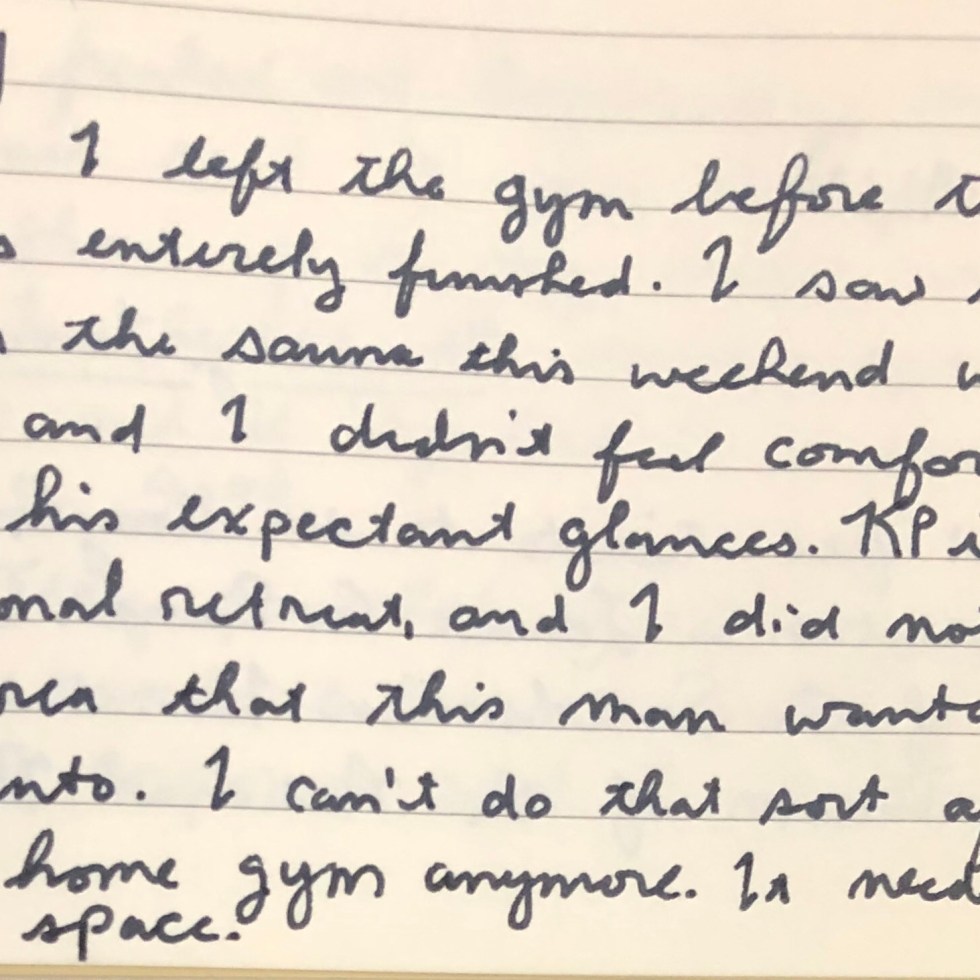 I left the gym before t
s entirely finished. I saw
the sauna this weekend w
and I didn't feel comfor
his expectant glances. KP i
onal retreat, and I did no
rea that this man wante
nto. I can't do that sort o
home gym anymore. It need
space.